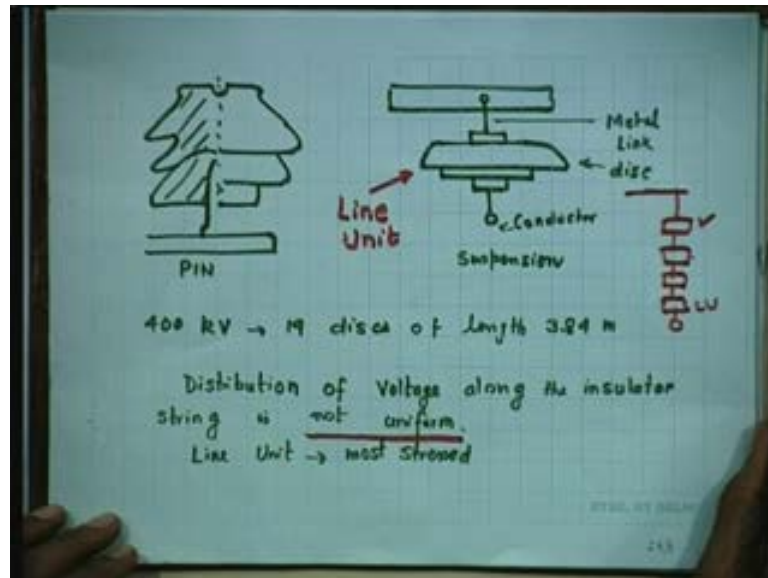 Metal
Link
disc
Line
Unit
Conductor
PIN
Suspension
LU
400 kV → 19 discs of length 3.84 m
Distibution of Voltage along the insulator
string is not uniform.
Line Unit → most stressed